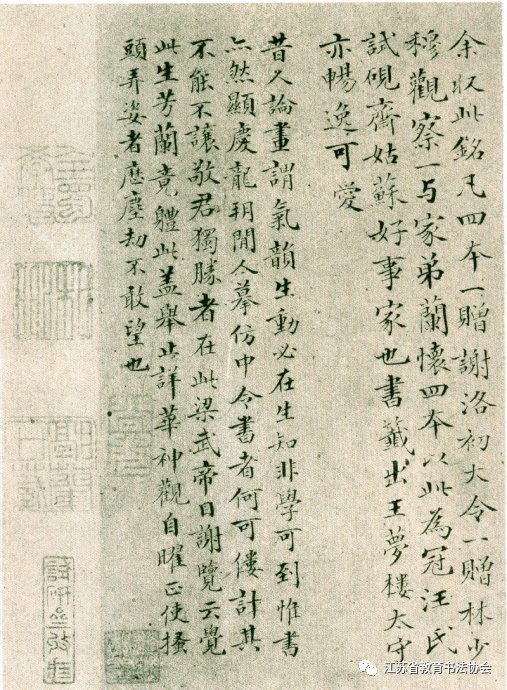 余收此銘凡四本一贈謝洛初大令一贈林少
穆觀察一与家弟蘭懷四本以此為冠汪氏
試硯齋姑蘇好事家也書籖出王夢樓太守
亦暢逸可愛
昔人論畫謂氣韻生動必在生知非學可到惟書
亦然顯慶龍朔閒人摹仿中令書者何可僂計其
不能不讓敬君獨勝者在此梁武帝目謝覽云覺
此生芳蘭竟軆此盖舉止詳華神觀自曜正使搔
頭弄姿者歷塵劫不敢望也
江苏省教育书法协会